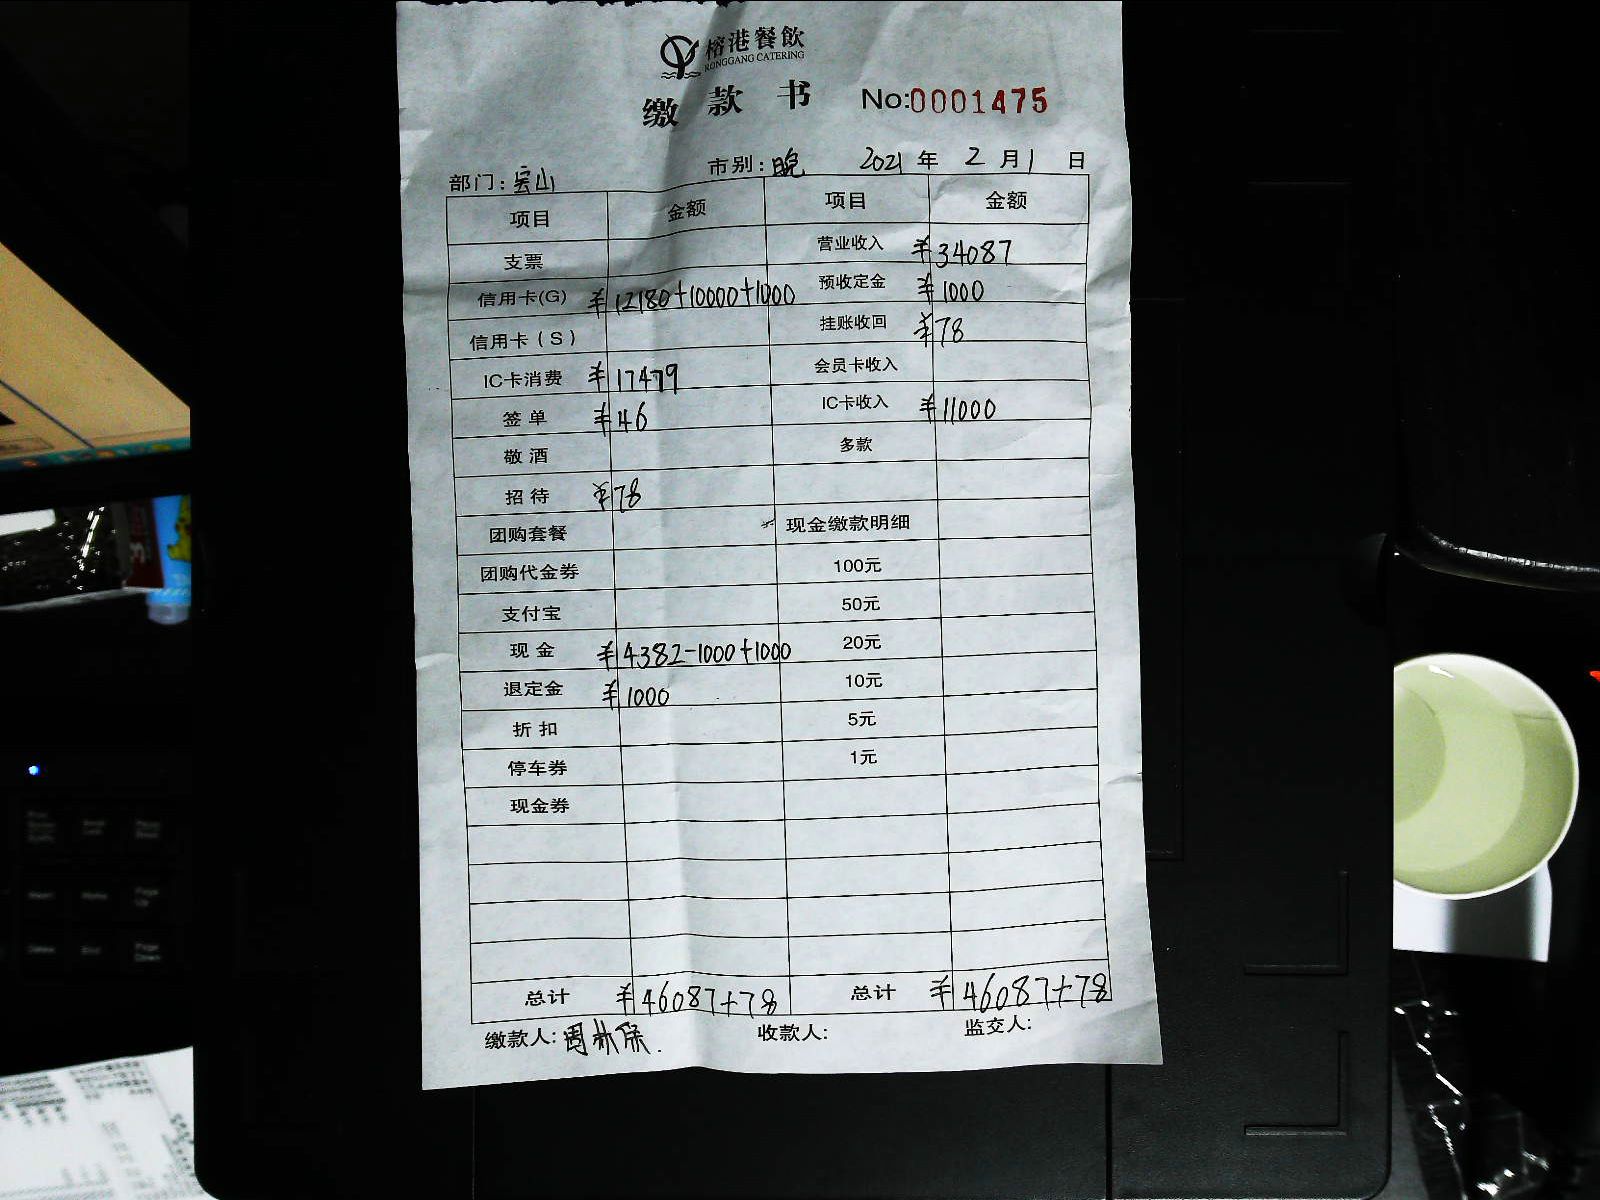 榕港餐飲
RONGGANG CATERING
缴款书 No:0001475
部门:宝山 市别:晚 2021年2月1日
项目 金额 项目 金额
支票 营业收入 ¥34087
信用卡(G) ¥12180+10000+1000 预收定金 ¥1000
信用卡(S) 挂账收回 ¥78
IC卡消费 ¥17479 会员卡收入
签单 ¥46 IC卡收入 ¥11000
敬酒 多款
招待 ¥78
团购套餐 现金缴款明细
团购代金券 100元
支付宝 50元
现金 ¥4382-1000+1000 20元
退定金 ¥1000 10元
折扣 5元
停车券 1元
现金券
总计 ¥46087+78 总计 ¥46087+78
缴款人:周林保. 收款人: 监交人: